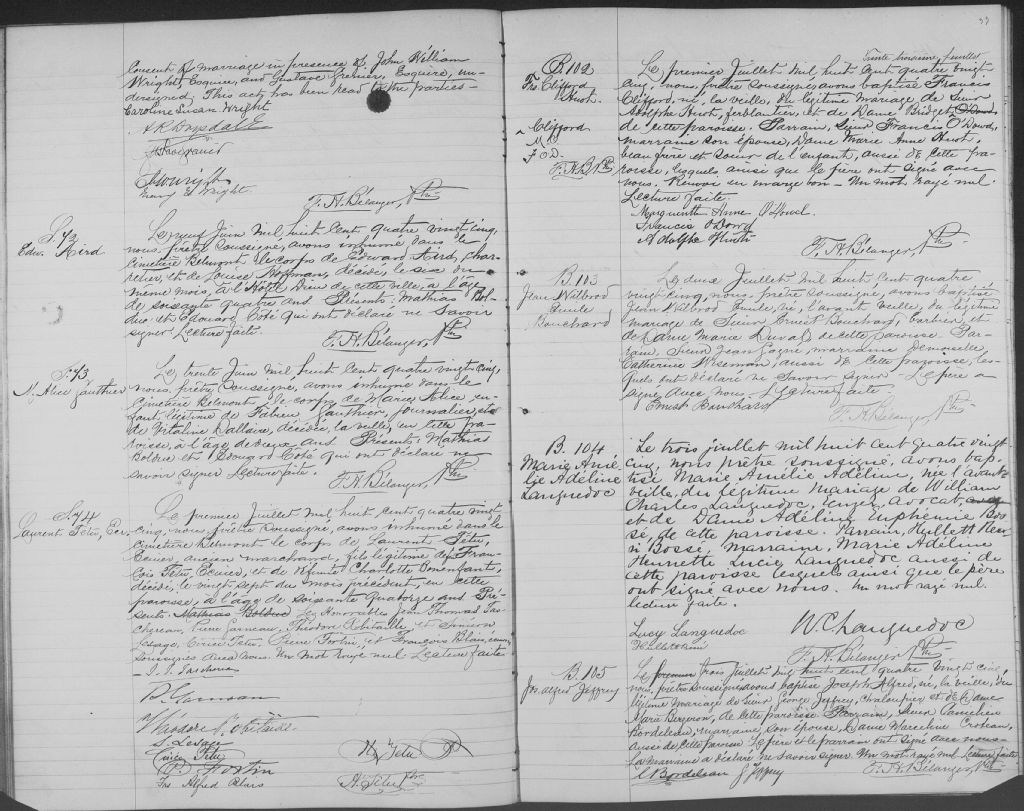 Consent of marriage in presence of John William
Wright, Esquire, and Gustave Grenier, Esquire, un-
dersigned. This act has been read to the parties—
Caroline Susan Wright
A R Drysdale
F. H. Bélanger, Ptre
S. 72
Edw. Aird
Le neuf Juin mil huit cent quatre vingt cinq,
nous, prêtre soussigné, avons inhumé dans le
cimetière Belmont, le corps de Edward Aird, char-
retier, et de Louise Hoffman, décédé, le six du
même mois, à l'Hôtel Dieu de cette ville, à l'âge
de soixante quatre ans. Présents: Mathias Bol-
duc et Edouard Coté qui ont déclaré ne savoir
signer. Lecture faite.
F. H. Bélanger, Ptre
S. 73
M. Alice Gauthier
Le trente Juin mil huit cent quatre vingt cinq,
nous, prêtre soussigné, avons inhumé dans le
cimetière Belmont, le corps de Marie Alice en-
fant légitime de Fabien Gauthier, journalier, et
de Vitaline Dallaire, décédée, la veille, en cette pa-
roisse, à l'âge de deux ans. Présents: Mathias
Bolduc et Edouard Coté qui ont déclaré ne
savoir signer. Lecture faite.
F. H. Bélanger, Ptre
S. 74
Laurent Têtu, Ecr.
Le premier Juillet, mil huit cent quatre vingt
cinq, nous, prêtre soussigné, avons inhumé dans le
cimetière Belmont le corps de Laurent Têtu,
Ecuier, ancien marchand, fils légitime de Fran-
çois Têtu, Ecuier, et de défunte Charlotte Bonenfant,
décédé, le vingt sept du mois précédent, en cette
paroisse, à l'âge de soixante quatorze ans. Pré-
sents: Mathias Bolduc les Honorables Jean Thomas Tas-
chereau, Pierre Garneau, Théodore Robitaille et Simeon
Lesage, Cirice Têtu, Pierre Fortin, et François Blais,
soussignés avec nous. Un mot rayé nul. Lecture faite—
J. T. Taschereau
P. Garneau
Théodore Robitaille
S. Lesage
Cirice Têtu
P. Fortin
Frs Alfred Blais
H. Têtu Ptre
33
Trente troisième feuillet
B. 102
Frs. Clifford
Huot.
Clifford
F. O. D.
F. H. B. Ptre
Le premier Juillet mil huit cent quatre vingt
cinq, nous, prêtre soussigné, avons baptisé Francis
Clifford, né, la veille, du légitime mariage de Sieur
Adolphe Huot, ferblantier, et de Dame Bridget O'Dowd
de cette paroisse. Parrain, Sieur Francis O'Dowd,
marraine son épouse, Dame Marie Anne Huot,
beau frère et soeur de l'enfant, aussi de cette pa-
roisse, lesquels ainsi que le père ont signé avec
nous. Renvoi en marge bon— Un mot rayé nul.
Lecture faite.
Anne O'Dowd
Francis O'Dowd
Adolphe Huot
F. H. Bélanger, Ptre
B. 103
Jean Wilbrod
Emile
Bouchard
Le deux Juillet mil huit cent quatre
vingt cinq, nous, prêtre soussigné, avons baptisé
Jean Wilbrod Emile, né, l'avant veille, du légitime
mariage de Sieur Ernest Bouchard, barbier, et
de Dame Marie Duval de cette paroisse. Par-
rain, Sieur Jean Gagné, marraine Demoiselle
Catherine Wiseman, aussi de cette paroisse, les-
quels ont déclaré ne savoir signer. Le père a
signé avec nous. Lecture faite.
Ernest Bouchard
F. H. Bélanger, Ptre
B. 104
Marie Amé-
lie Adéline
Languedoc
Le trois juillet mil huit cent quatre vingt-
cinq, nous prêtre soussigné, avons bap-
tisé Marie Amélie Adéline, née l'avant-
veille, du légitime mariage de William
Charles Languedoc, Ecuyer, avocat
et de Dame Adéline Euphémie Bos-
sé, de cette paroisse. Parrain, Hullett Hen-
ri Bossé, Marraine, Marie Adéline
Henriette Lucie Languedoc aussi de
cette paroisse lesquels ainsi que le père
ont signé avec nous. Un mot rayé nul.
lecture faite.
Lucy Languedoc
W. C. Languedoc
F. H. Bélanger, Ptre
B. 105
Jos. Alfred Jeffrey
Le premier trois Juillet mil huit cent quatre vingt cinq,
nous, prêtre soussigné, avons baptisé Joseph Alfred, né, la veille, du
légitime mariage de Sieur George Jeffrey, et de Dame
Marie Bergeron, de cette paroisse. Parrain, Sieur
Bordeleau, marraine son épouse, Dame Marceline Croteau,
aussi de cette paroisse. Le père et le parrain ont signé avec nous.
La marraine a déclaré ne savoir signer. Un mot rayé nul. Lecture faite
Bordeleau G Jeffrey
F. H. Bélanger, Ptre